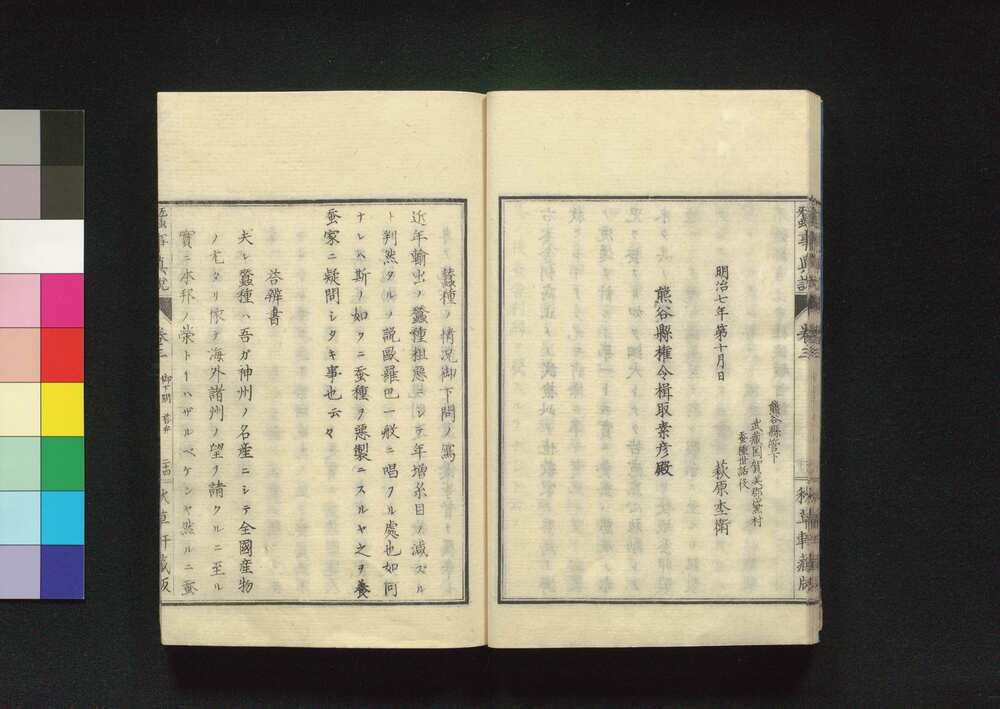 蚕事輿論
卷三
秋蛩軒藏版
熊谷縣管下
武藏国賀美郡黛村
蚕種世話役
萩原杢衛
明治七年第十月日
熊谷縣權令楫取素彦殿
蠶種ノ情况御下問ノ寫
近年輸出ノ蠶種粗悪ニシテ年増糸目ヲ減スル
ト判然タルノ説歐羅巴一般ニ唱フル處也如何
ナレハ斯ノ如クニ蚕種ヲ悪製ニスルヤ之ヲ養
蚕家ニ疑問シタキ事也云々
答辨書
夫レ蠶種ハ吾ガ神州ノ名産ニシテ全國産物
ノ尤タリ依テ海外諸州ノ望ヲ請クルニ至ル
實ニ本邦ノ榮トイハザルベケンヤ然ルニ蚕
卷三
二四